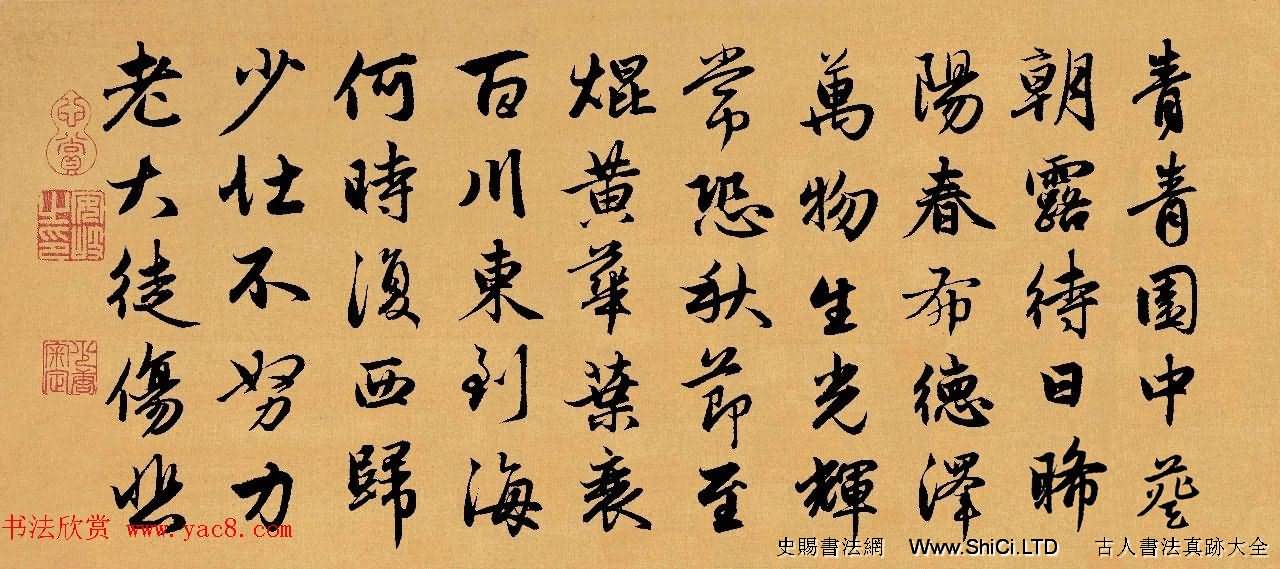 青青園中葵
朝露待日晞
陽春布德澤
萬物生光輝
常恐秋節至
焜黃華葉衰
百川東到海
何時復西歸
少壯不努力
老大徒傷悲
书法欣赏 www.yac8.com
史賜書法網 Www.ShiCi.LTD 古人書法真跡大全